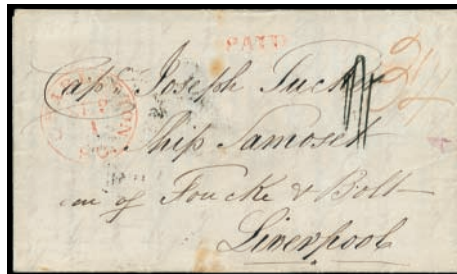 PAID
Capt Joseph Tucker
Ship Samoset
of Foucke & Bolt
Liverpool